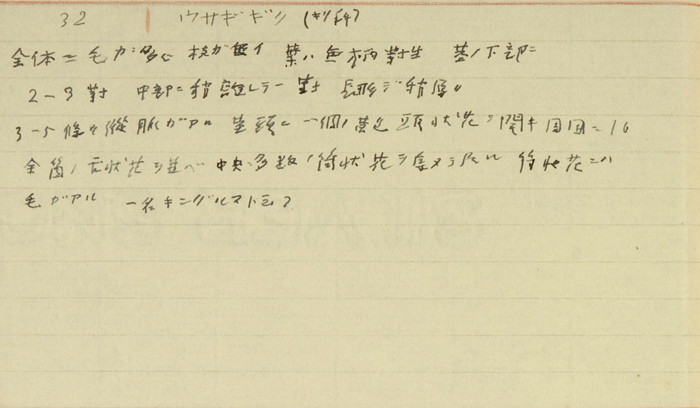 32 ウサギギク (キク科)
全体ニ毛ガ多ク 枝ガ無イ 葉ハ無柄對生 茎ノ下部ニ
2-3對 中部ニ稍離レテ一對 長形デ稍厚ク
3-5條ノ縦脈ガアル 茎頭ニ一個ノ黄色頭状花ヲ開キ周囲ニ16
舌状花ヲ並べ中央ニ多数ノ筒状花ヲ 筒状花ニハ
毛ガアル 一名キングルマト云フ